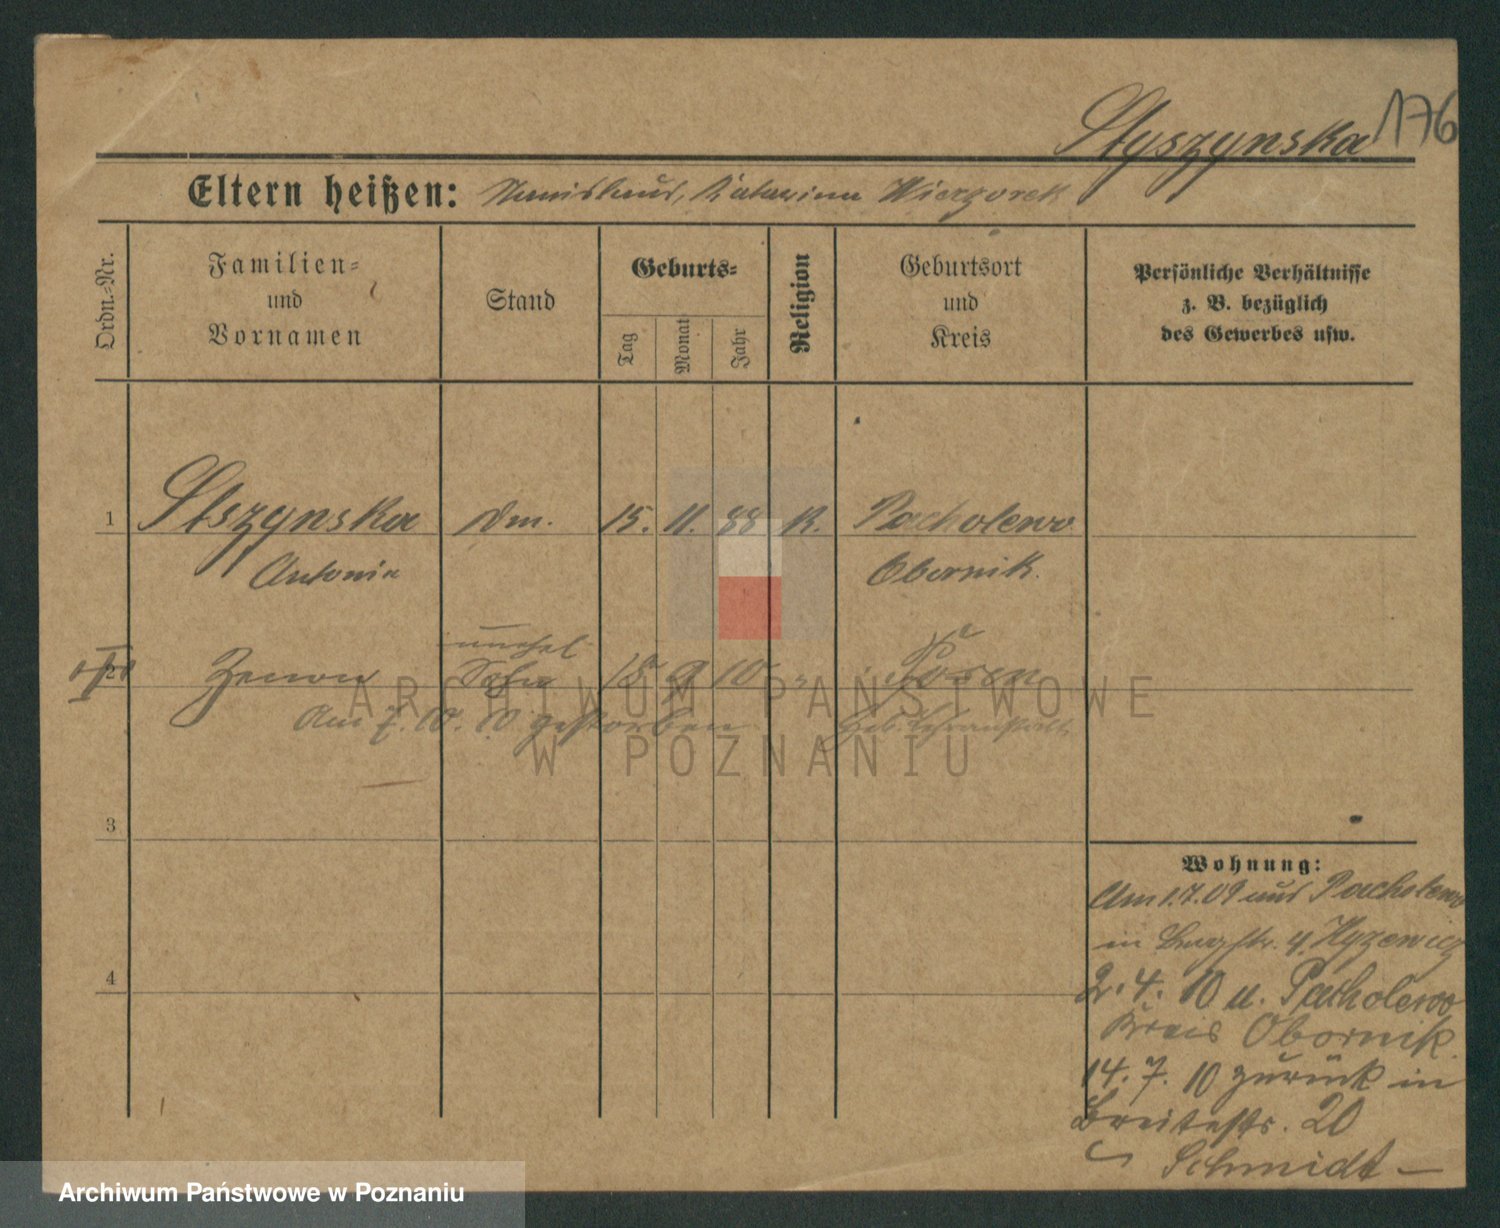 Styszynska 176
Eltern heißen: Stanislaus, Katarina Wierzorek
Ordn.-Nr.
Familien-
und
Vornamen
Stand
Geburts-
Tag
Monat
Jahr
Religion
Geburtsort
und
Kreis
Persönliche Verhältnisse
z. B. bezüglich
des Gewerbes usw.
1 Stszynska dm. 15. 11. 88 K. Pacholewo
Antonia Obornik.
unehel
2 Zenon Sohn 18 9 10 " Posen
Am 7. 10. 10 gestorben Heb. Lehranstalt
3
4
Wohnung:
Am 1.7.09 aus Pacholewo
in 
2. 4. 10 n. Pacholewo
Kreis Obornik.
14. 7. 10 zurück in
Breitestr. 20
Schmidt
ARCHIWUM PAŃSTWOWE
W POZNANIU
Archiwum Państwowe w Poznaniu